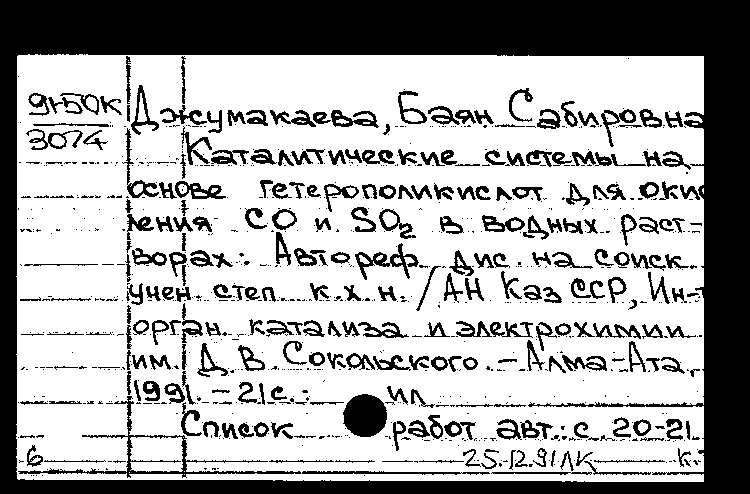 91-50К Джумакаева, Баян Сабировна
3074
Каталитические системы на
основе гетерополикислот для окис
ления CO и SO2 в водных раст-
ворах: Автореф. дис. на соиск.
учен. степ. к.х.н. / АН Каз ССР, Ин-т
орган. катализа и электрохимии
им. Д. В. Сокольского. - Алма-Ата,
1991. - 21 с.: ил
Список работ авт.: с. 20-21
6 25.12.91 ЛК